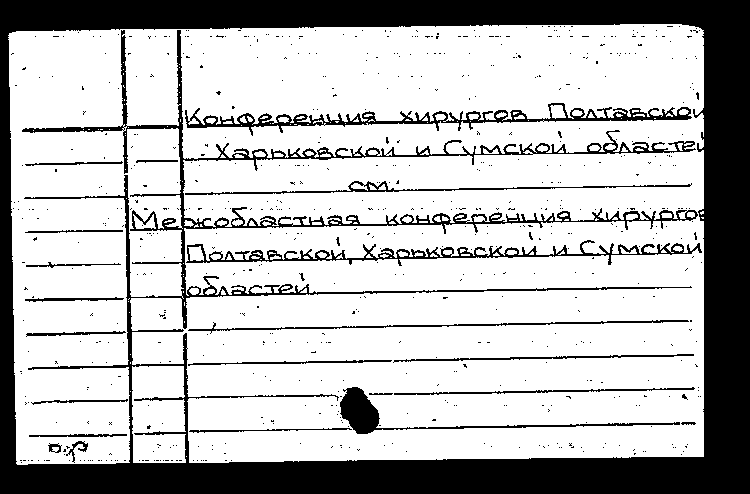 Конференция хирургов Полтавской
Харьковской и Сумской областей
см.:
Межобластная конференция хирургов
Полтавской, Харьковской и Сумской
областей.